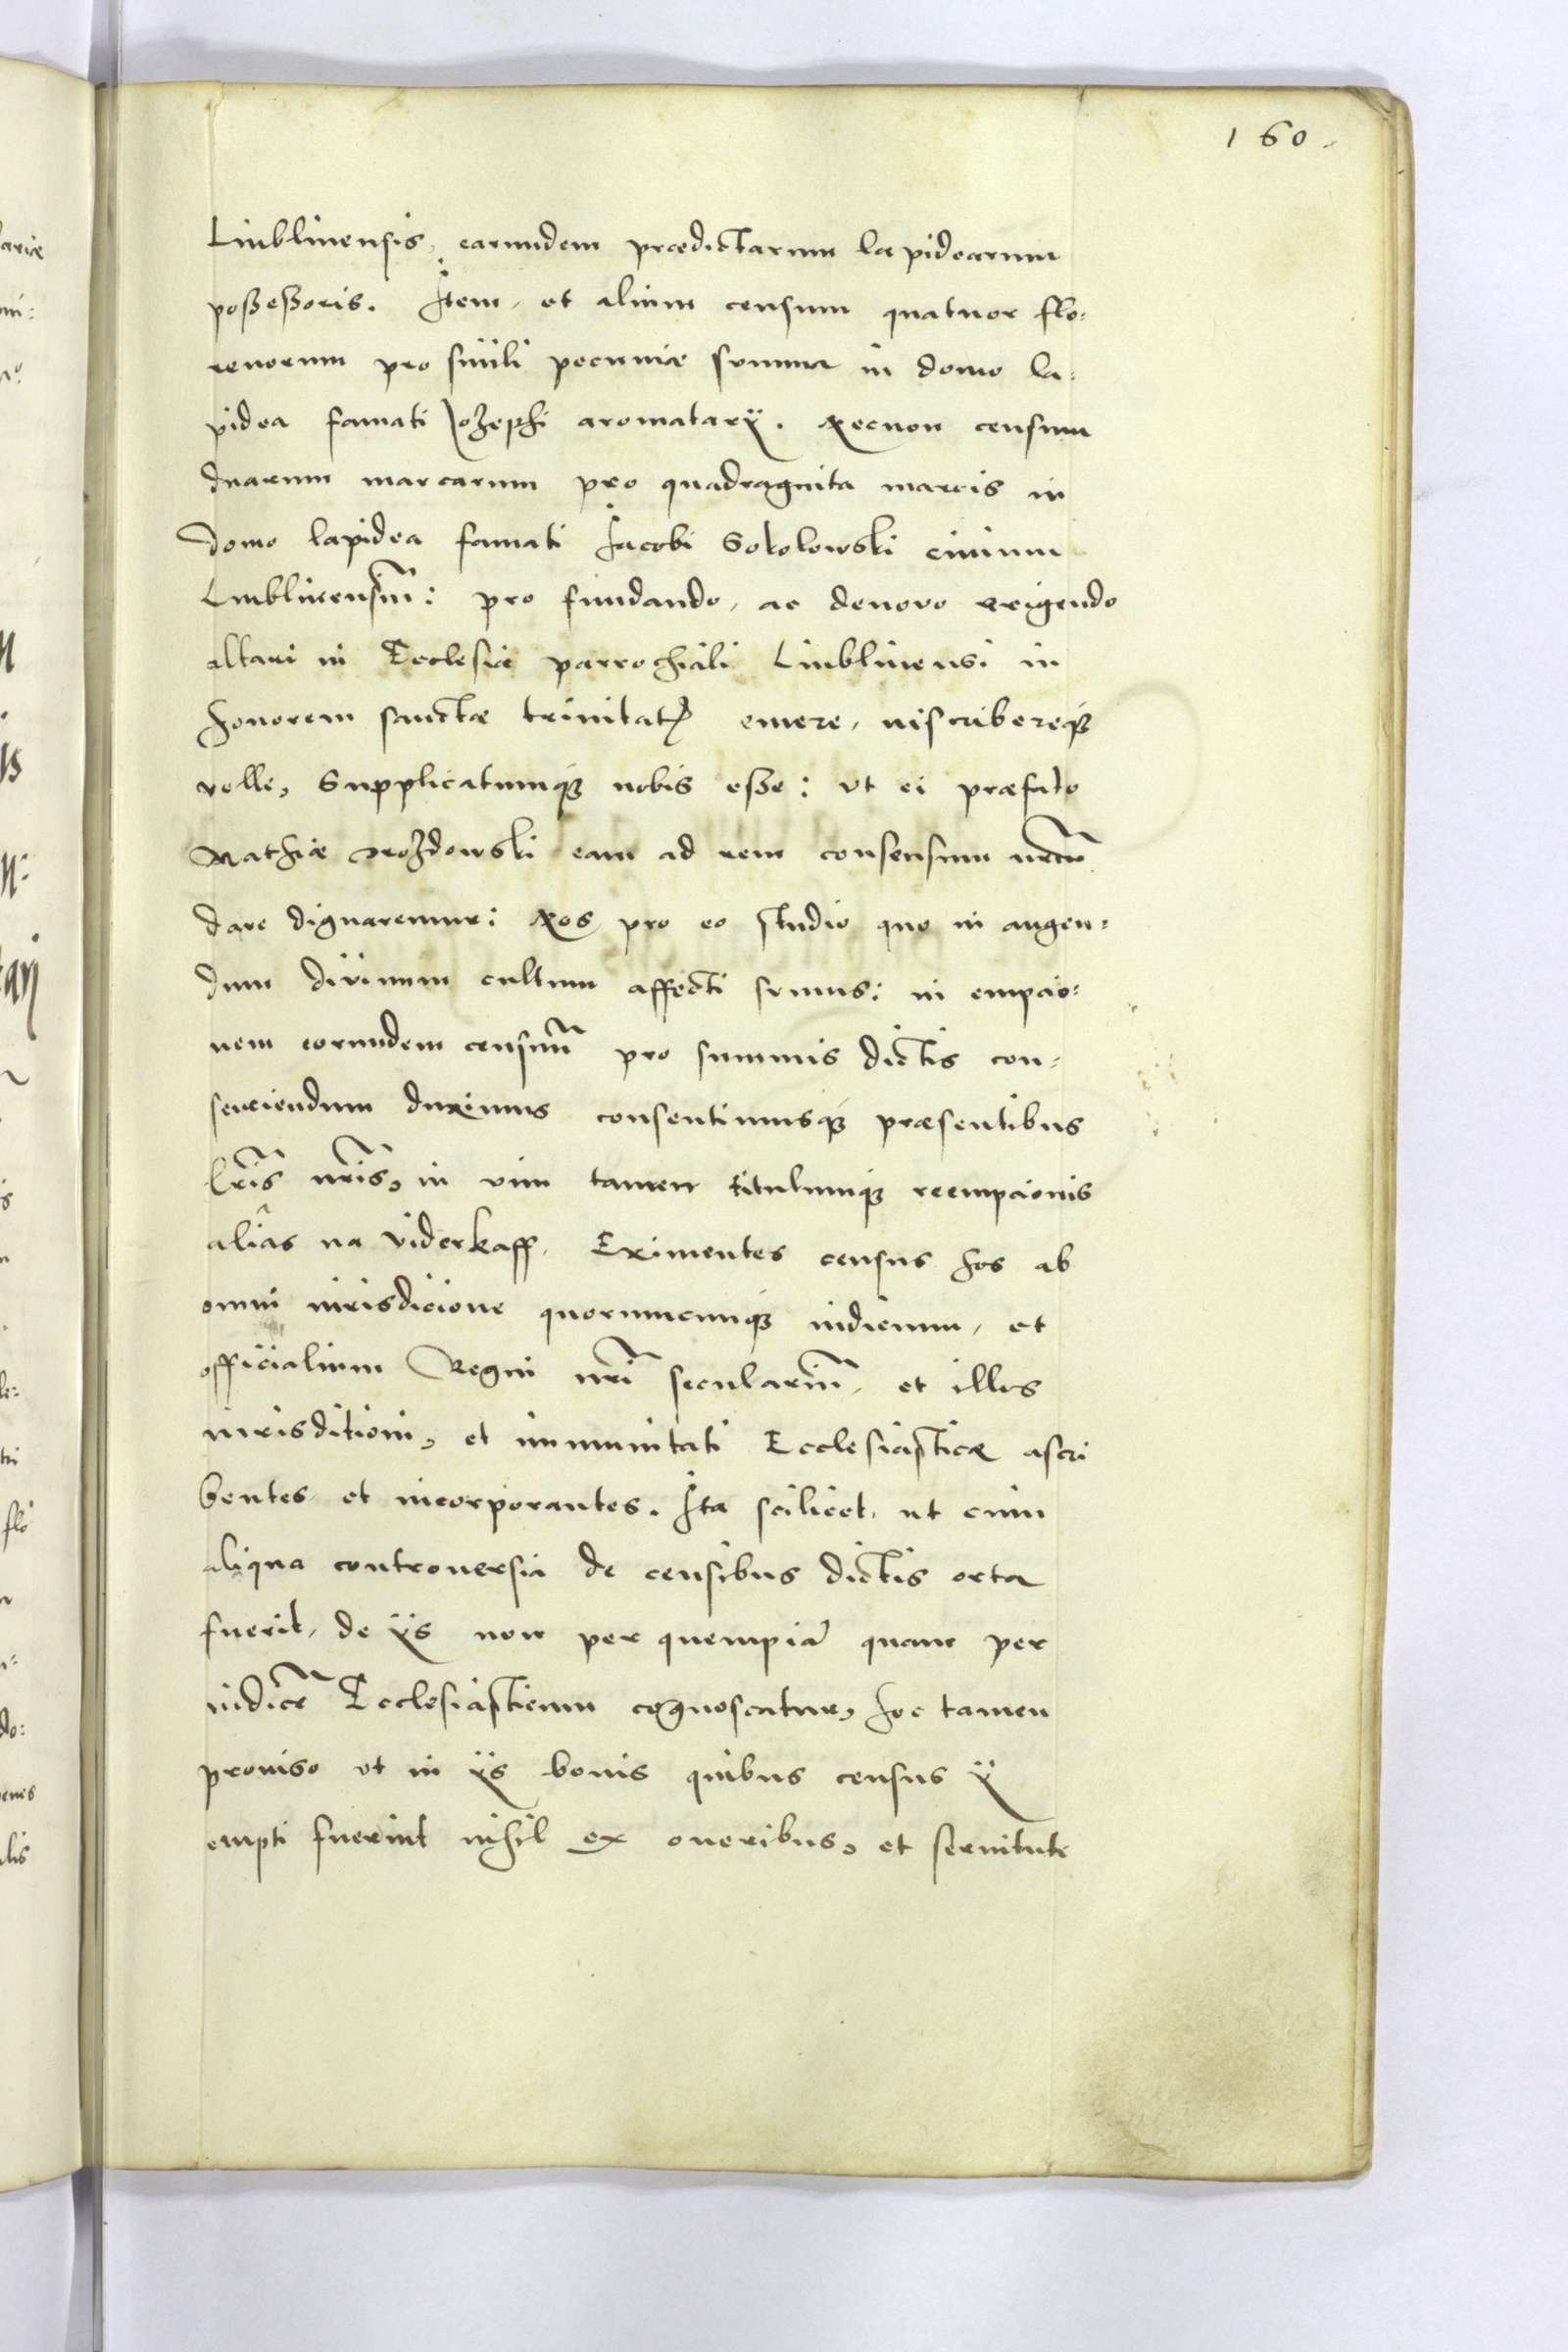 160.
Liublinensis, earundem prædictarum lapidearum
poßeßoris. Item, et alium censum quatuor flo:
renorum pro simili pecuniæ summa in domo la:
pidea famati Jozephi aromatarÿ. Necnon censum
duarum marcarum pro quadraginta marcis in
domo lapidea famati Jacobi Sokolowski ciuium
Lublinensiu͂: pro fundando, ac denovo erigendo
altari in Ecclesia parrochiali Liublinensi in
honorem sanctæ trinitatꝭ emere, inscribereqꝫ
velle, Supplicatumqꝫ nobis eße: vt ei præfato
Mathiæ Mozdowski eam ad rem consensum nr͂m
dare dignaremur: Nos pro eo studio quo in augen:
dum divinum cultum affecti sumus: in empcio:
nem eorundem censuu͂ pro summis dictis con:
senciendum duximus consentimusqꝫ præsentibus
lr͂is nr͂is, in vim tamen titulumqꝫ reempcionis
aliâs na viderkaff. Eximentes census hos ab
omni iurisdicione quorumcumqꝫ iudicum, et
officialium Regni nr͂i seculariu͂, et illos
iurisditioni, et immunitati Ecclesiasticæ ascri
bentes et incorporantes. Ita scilicet, ut cum
aliqua controuersia de censibus dictis orta
fuerit, de ÿs non per quempia͂ quam per
iudice͂ Ecclesiasticum cognoscatur, hoc tamen
proviso vt in ÿs bonis quibus census ÿ
empti fuerint nihil ex oneribus, et seruitute